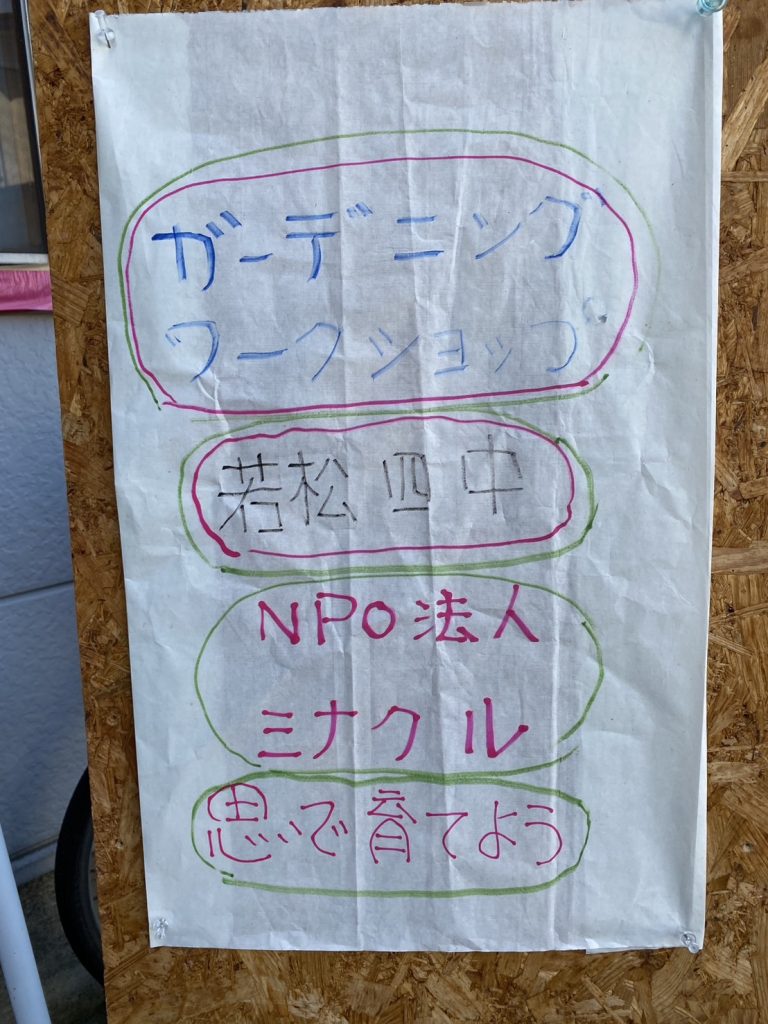 ガーデニング
ワークショップ
若松四中
NPO法人
ミナクル
思いで育てよう